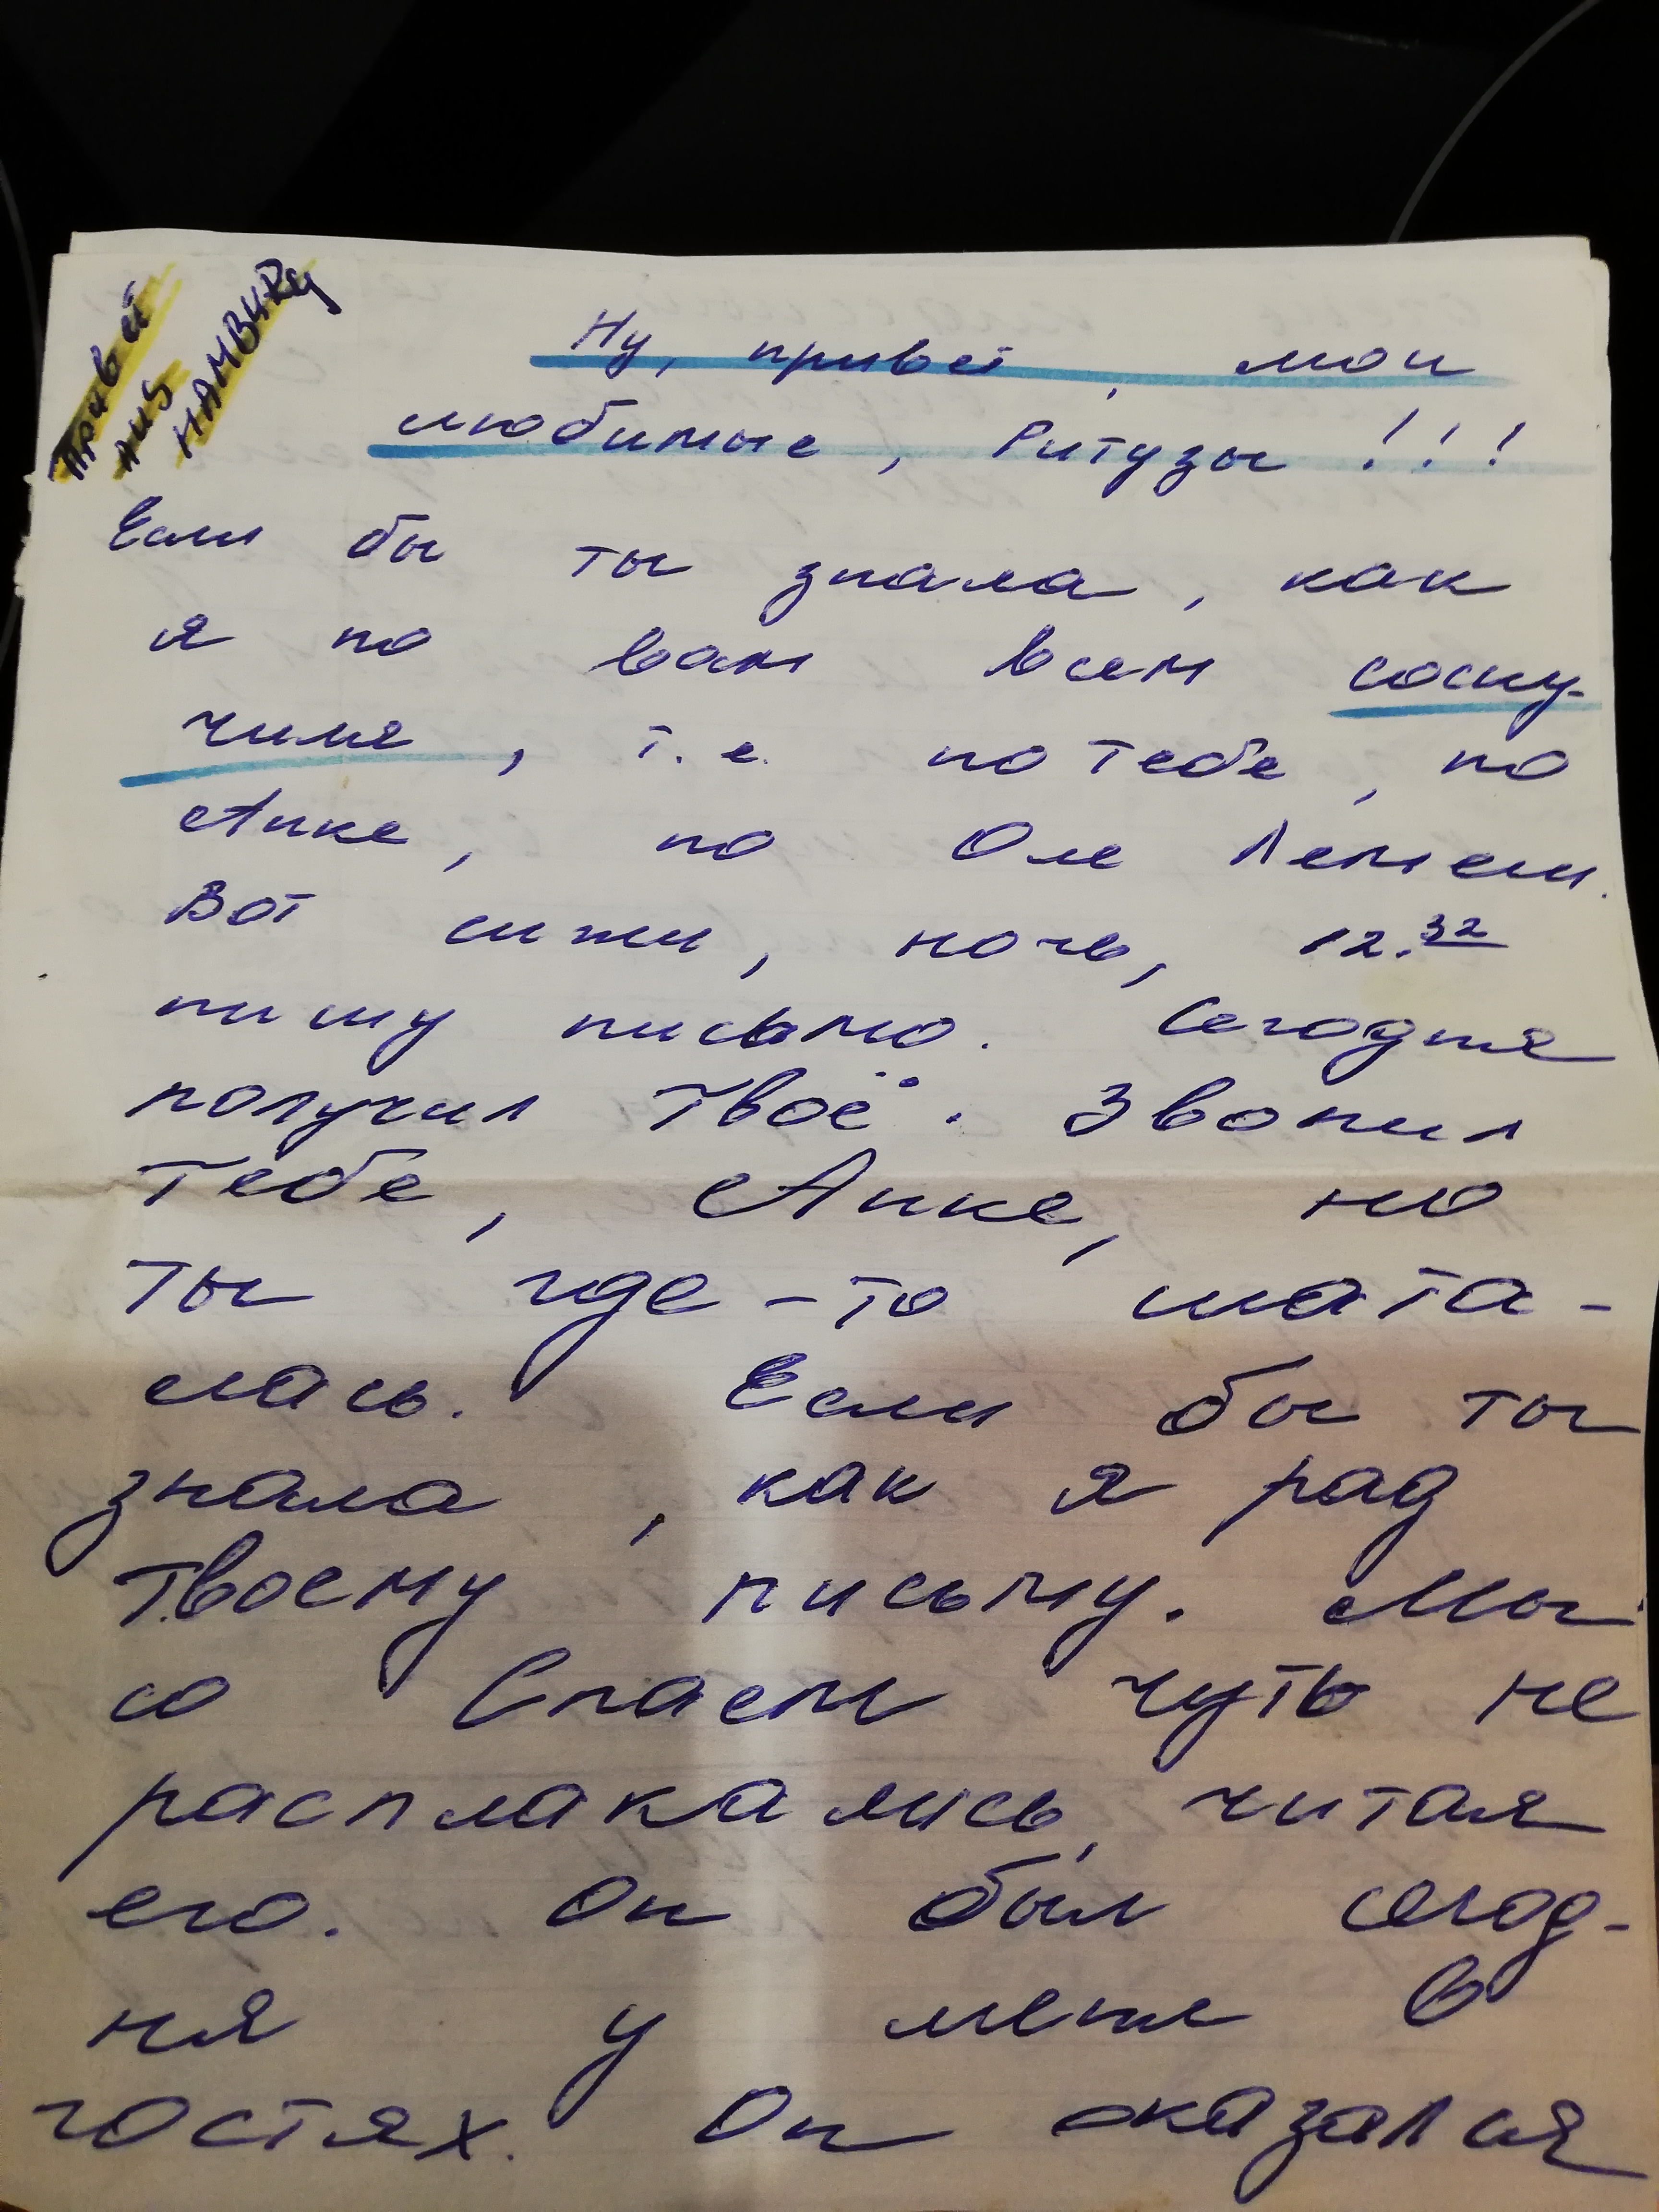 Привет
aus
HAMBURg
Ну, привет, мои
любимые, Ритузы!!!
Если бы ты знала, как
я по вам всем соску-
чился, т.е. по тебе, по
Аньке, по Оле
Вот сижу, ночь, 12.32
пишу письмо. Сегодня
получил твоё. Звонил
тебе, Аньке, но
ты где-то шата-
лась. Если бы ты
знала, как я рад
твоему письму. Мы
со Спаем чуть не
расплакались, читая
его. Он был сегод-
ня у меня в
гостях. Он оказался